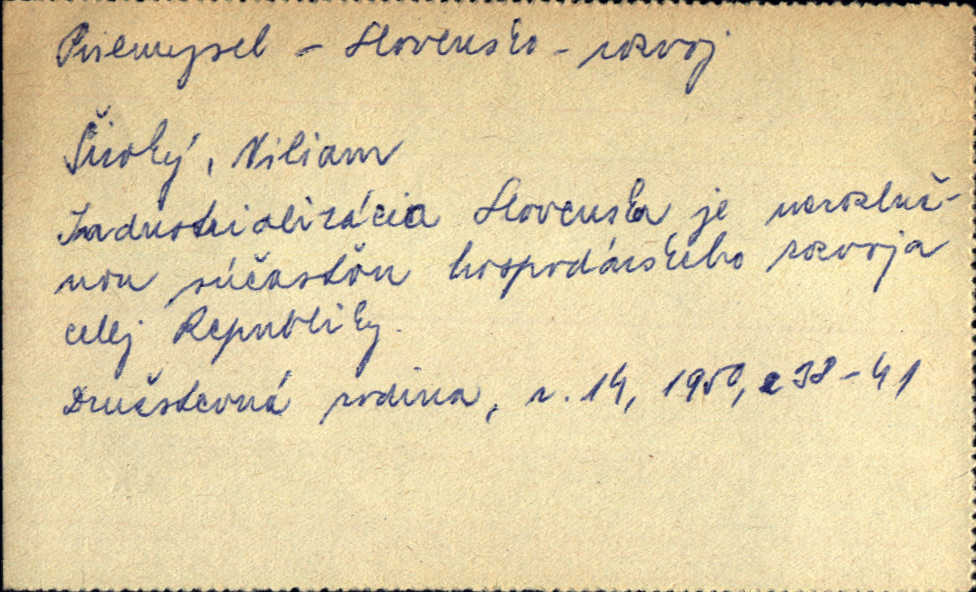 Priemysel - Slovensko - rozvoj
Široký, Viliam
Industrializácia Slovenska je nerozluč-
nou súčasťou hospodárskeho rozvoja
celej Republiky.
Družstevná rodina, r. 14, 1950, č 38-41